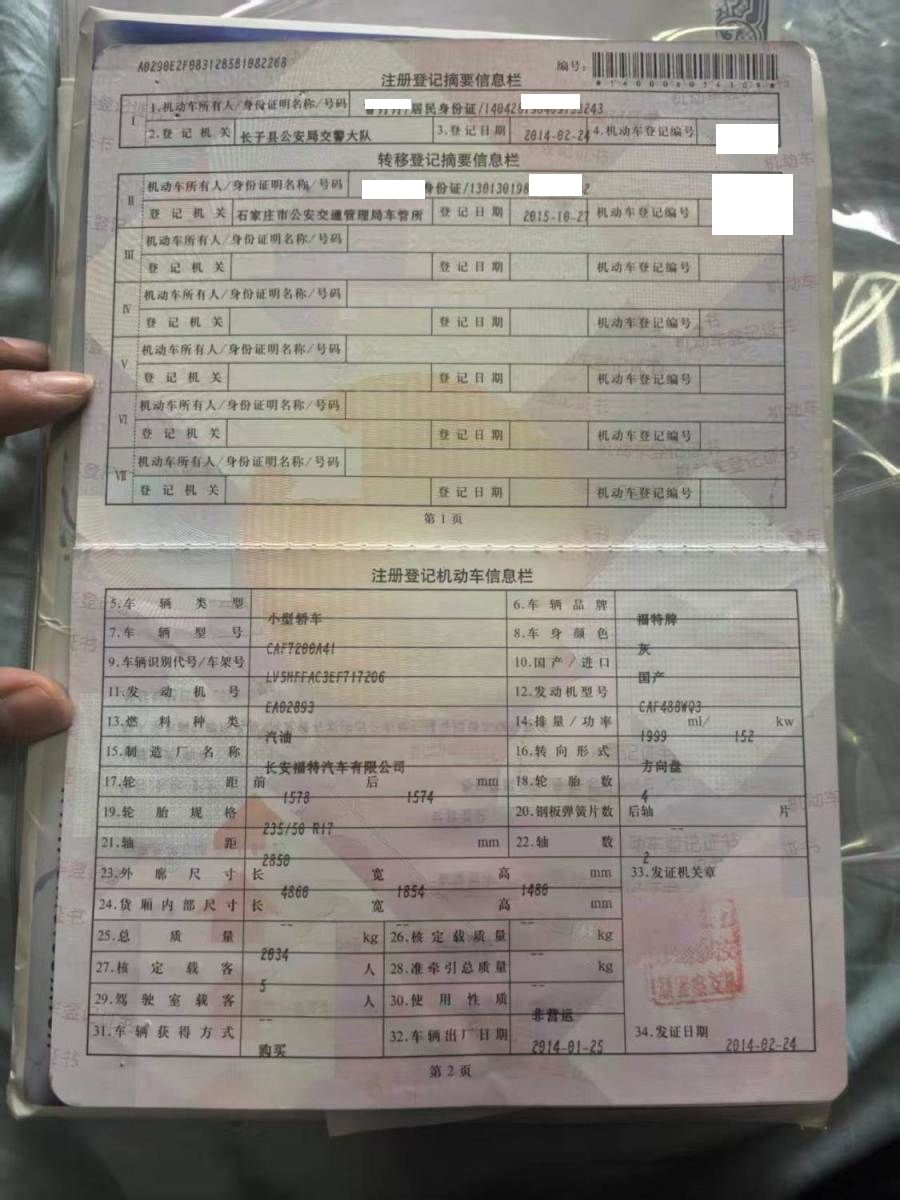 A0290E2F0831285B1082268
编号:
注册登记摘要信息栏
I 1.机动车所有人/身份证明名称/号码 /居民身份证/
2.登记机关 长子县公安局交警大队 3.登记日期 2014-02-24 4.机动车登记编号
转移登记摘要信息栏
II 机动车所有人/身份证明名称/号码 身份证/
登记机关 石家庄市公安交通管理局车管所 登记日期 2015-10-27 机动车登记编号
III 机动车所有人/身份证明名称/号码
登记机关 登记日期 机动车登记编号
IV 机动车所有人/身份证明名称/号码
登记机关 登记日期 机动车登记编号
V 机动车所有人/身份证明名称/号码
登记机关 登记日期 机动车登记编号
VI 机动车所有人/身份证明名称/号码
登记机关 登记日期 机动车登记编号
VII 机动车所有人/身份证明名称/号码
登记机关 登记日期 机动车登记编号
第1页
注册登记机动车信息栏
5.车辆类型 小型轿车 6.车辆品牌 福特牌
7.车辆型号 CAF7200A41 8.车身颜色 灰
9.车辆识别代号/车架号 LVSHFFAC3EF717206 10.国产/进口 国产
11.发动机号 EA02893 12.发动机型号 CAF488WQ3
13.燃料种类 汽油 14.排量/功率 1999 ml/ 152 kw
15.制造厂名称 长安福特汽车有限公司 16.转向形式 方向盘
17.轮距 前 1578 后 1574 mm 18.轮胎数 4
19.轮胎规格 235/50 R17 20.钢板弹簧片数 后轴 -- 片
21.轴距 2850 mm 22.轴数 2
23.外廓尺寸 长 4860 宽 1854 高 1480 mm 33.发证机关章
24.货厢内部尺寸 长 -- 宽 -- 高 -- mm
25.总质量 2034 kg 26.核定载质量 -- kg
27.核定载客 5 人 28.准牵引总质量 -- kg
29.驾驶室载客 -- 人 30.使用性质 非营运
31.车辆获得方式 购买 32.车辆出厂日期 2014-01-25 34.发证日期 2014-02-24
第2页